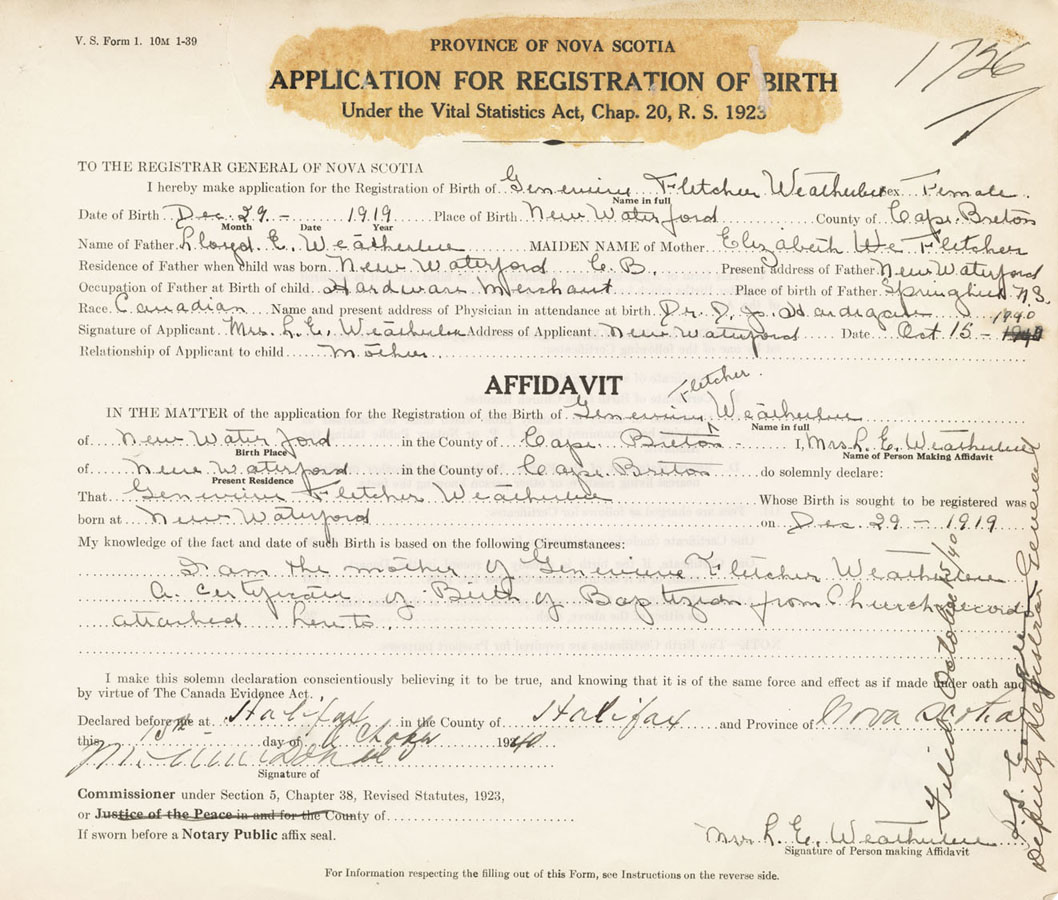 V. S. Form 1. 10M 1-39
PROVINCE OF NOVA SCOTIA
APPLICATION FOR REGISTRATION OF BIRTH
Under the Vital Statistics Act, Chap. 20, R. S. 1923
1726
TO THE REGISTRAR GENERAL OF NOVA SCOTIA
I hereby make application for the Registration of Birth of Genevieve Fletcher Weatherbee Sex Female
Name in full
Date of Birth Dec. 29 - 1919 Place of Birth New Waterford County of Cape Breton
Month Date Year
Name of Father Lloyd E. Weatherbee MAIDEN NAME of Mother Elizabeth Fletcher
Residence of Father when child was born New Waterford C.B. Present address of Father New Waterford
Occupation of Father at Birth of child Hardware Merchant Place of birth of Father Springhill N.S.
Race Canadian Name and present address of Physician in attendance at birth Dr.
Signature of Applicant Mrs. L. E. Weatherbee Address of Applicant New Waterford Date Oct 15 - 1940
Relationship of Applicant to child mother
AFFIDAVIT
IN THE MATTER of the application for the Registration of the Birth of Genevieve Fletcher Weatherbee
Name in full
of New Waterford in the County of Cape Breton I, Mrs. L. E. Weatherbee
Birth Place Name of Person Making Affidavit
of New Waterford in the County of Cape Breton do solemnly declare:
Present Residence
That Genevieve Fletcher Weatherbee Whose Birth is sought to be registered was
born at New Waterford on Dec 29 - 1919
My knowledge of the fact and date of such Birth is based on the following Circumstances:
I am the mother of Genevieve Fletcher Weatherbee
A certificate of Birth of Baptizion from Church records
attached hereto.
I make this solemn declaration conscientiously believing it to be true, and knowing that it is of the same force and effect as if made under oath and
by virtue of The Canada Evidence Act.
Declared before me at Halifax in the County of Halifax and Province of Nova Scotia
this 15th day of October 1940
Signature of
Commissioner under Section 5, Chapter 38, Revised Statutes, 1923,
or Justice of the Peace in and for the County of
If sworn before a Notary Public affix seal.
Mrs. L. E. Weatherbee
Signature of Person making Affidavit
For Information respecting the filling out of this Form, see Instructions on the reverse side.
Filed October 15/40
Deputy Registrar General